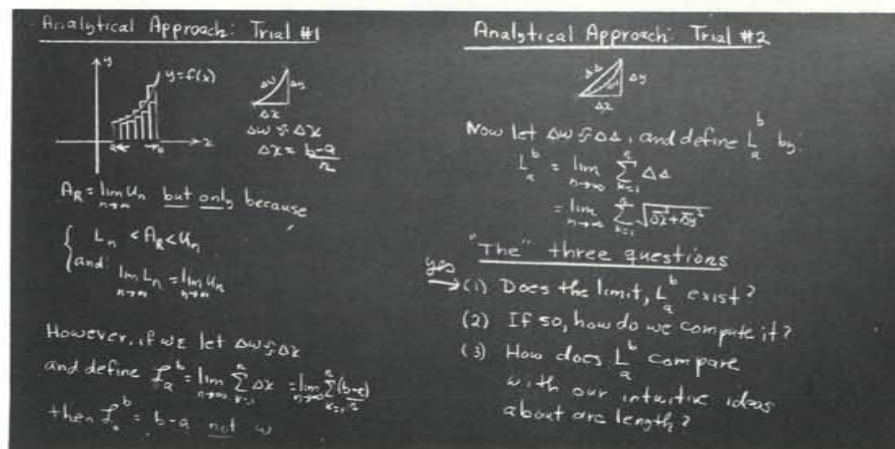 Analytical Approach: Trial #1
y
y=f(x)
Δw
Δy
Δx
a
b
x
Δw ≈ Δx
Δx = b-a/n
A_R = lim n→∞ U_n but only because
L_n < A_R < U_n
and: lim n→∞ L_n = lim n→∞ U_n
However, if we let Δw ≈ Δx
and define L_a^b = lim n→∞ Σ k=1 n Δx = lim n→∞ Σ k=1 n (b-a)/n
then L_a^b = b-a not w
Analytical Approach: Trial #2
Δs
Δw
Δy
Δx
Now let Δw ≈ Δs, and define L_a^b by:
L_a^b = lim n→∞ Σ k=1 n Δs
= lim n→∞ Σ k=1 n √Δx²+Δy²
"The" three questions
yes
→ (1) Does the limit, L_a^b exist?
(2) If so, how do we compute it?
(3) How does L_a^b compare
with our intuitive ideas
about arc length?